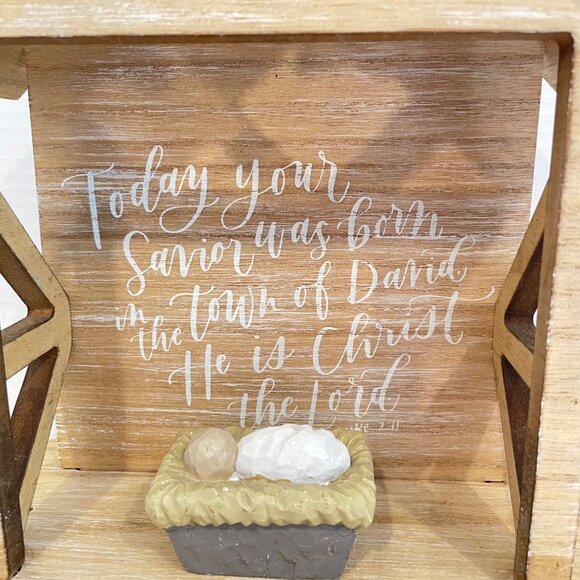 Today your
Savior was born
in the town of David.
He is Christ
the Lord
Luke 2:11